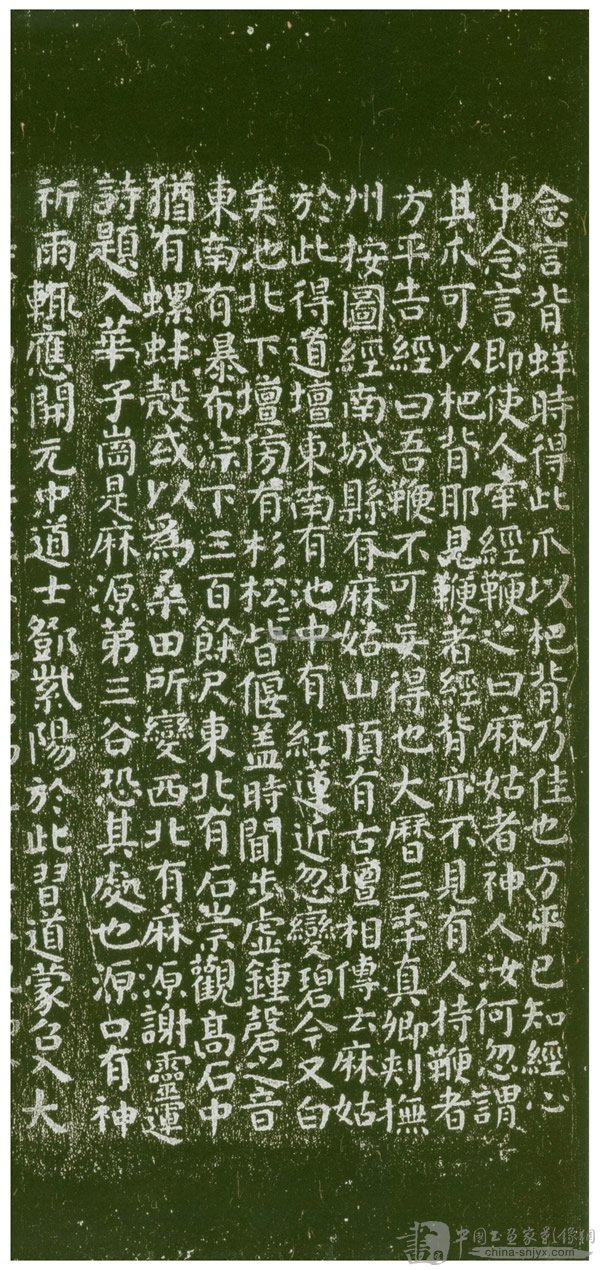 念言背蛘時得此爪以杷背乃佳也方平已知經心
中念言即使人牽經鞭之曰麻姑者神人汝何忽謂
其爪可以杷背耶見鞭著經背亦不見有人持鞭者
方平告經曰吾鞭不可妄得也大曆三年真卿刺撫
州按圖經南城縣有麻姑山頂有古壇相傳云麻姑
於此得道壇東南有池中有紅蓮近忽變碧今又白
矣池北下壇傍有杉松松皆偃盖時聞步虛鍾磬之音
東南有瀑布淙下三百餘尺東北有石崇觀高石中
猶有螺蚌殼或以為桑田所變西北有麻源謝靈運
詩題入華子崗是麻源第三谷恐其處也源口有神
祈雨輒應開元中道士鄧紫陽於此習道蒙召入大
中国书画家影像網
china-snjyx.com